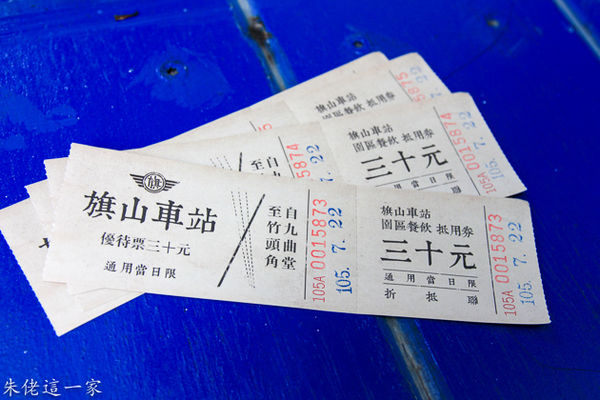 旗山車站
園區餐飲 抵用券
5875
22
旗山車站
園區餐飲 抵用券
三十元
通用當日限
105A 0015874
105. 7. 22
至
自九
5874
7. 22
旗
旗山車站
優待票三十元
通用當日限
自九曲堂
至竹頭角
105A 0015873
105. 7. 22
旗山車站
園區餐飲 抵用券
三十元
通用當日限
折抵聯
105A 0015873
105. 7. 22
朱佬這一家